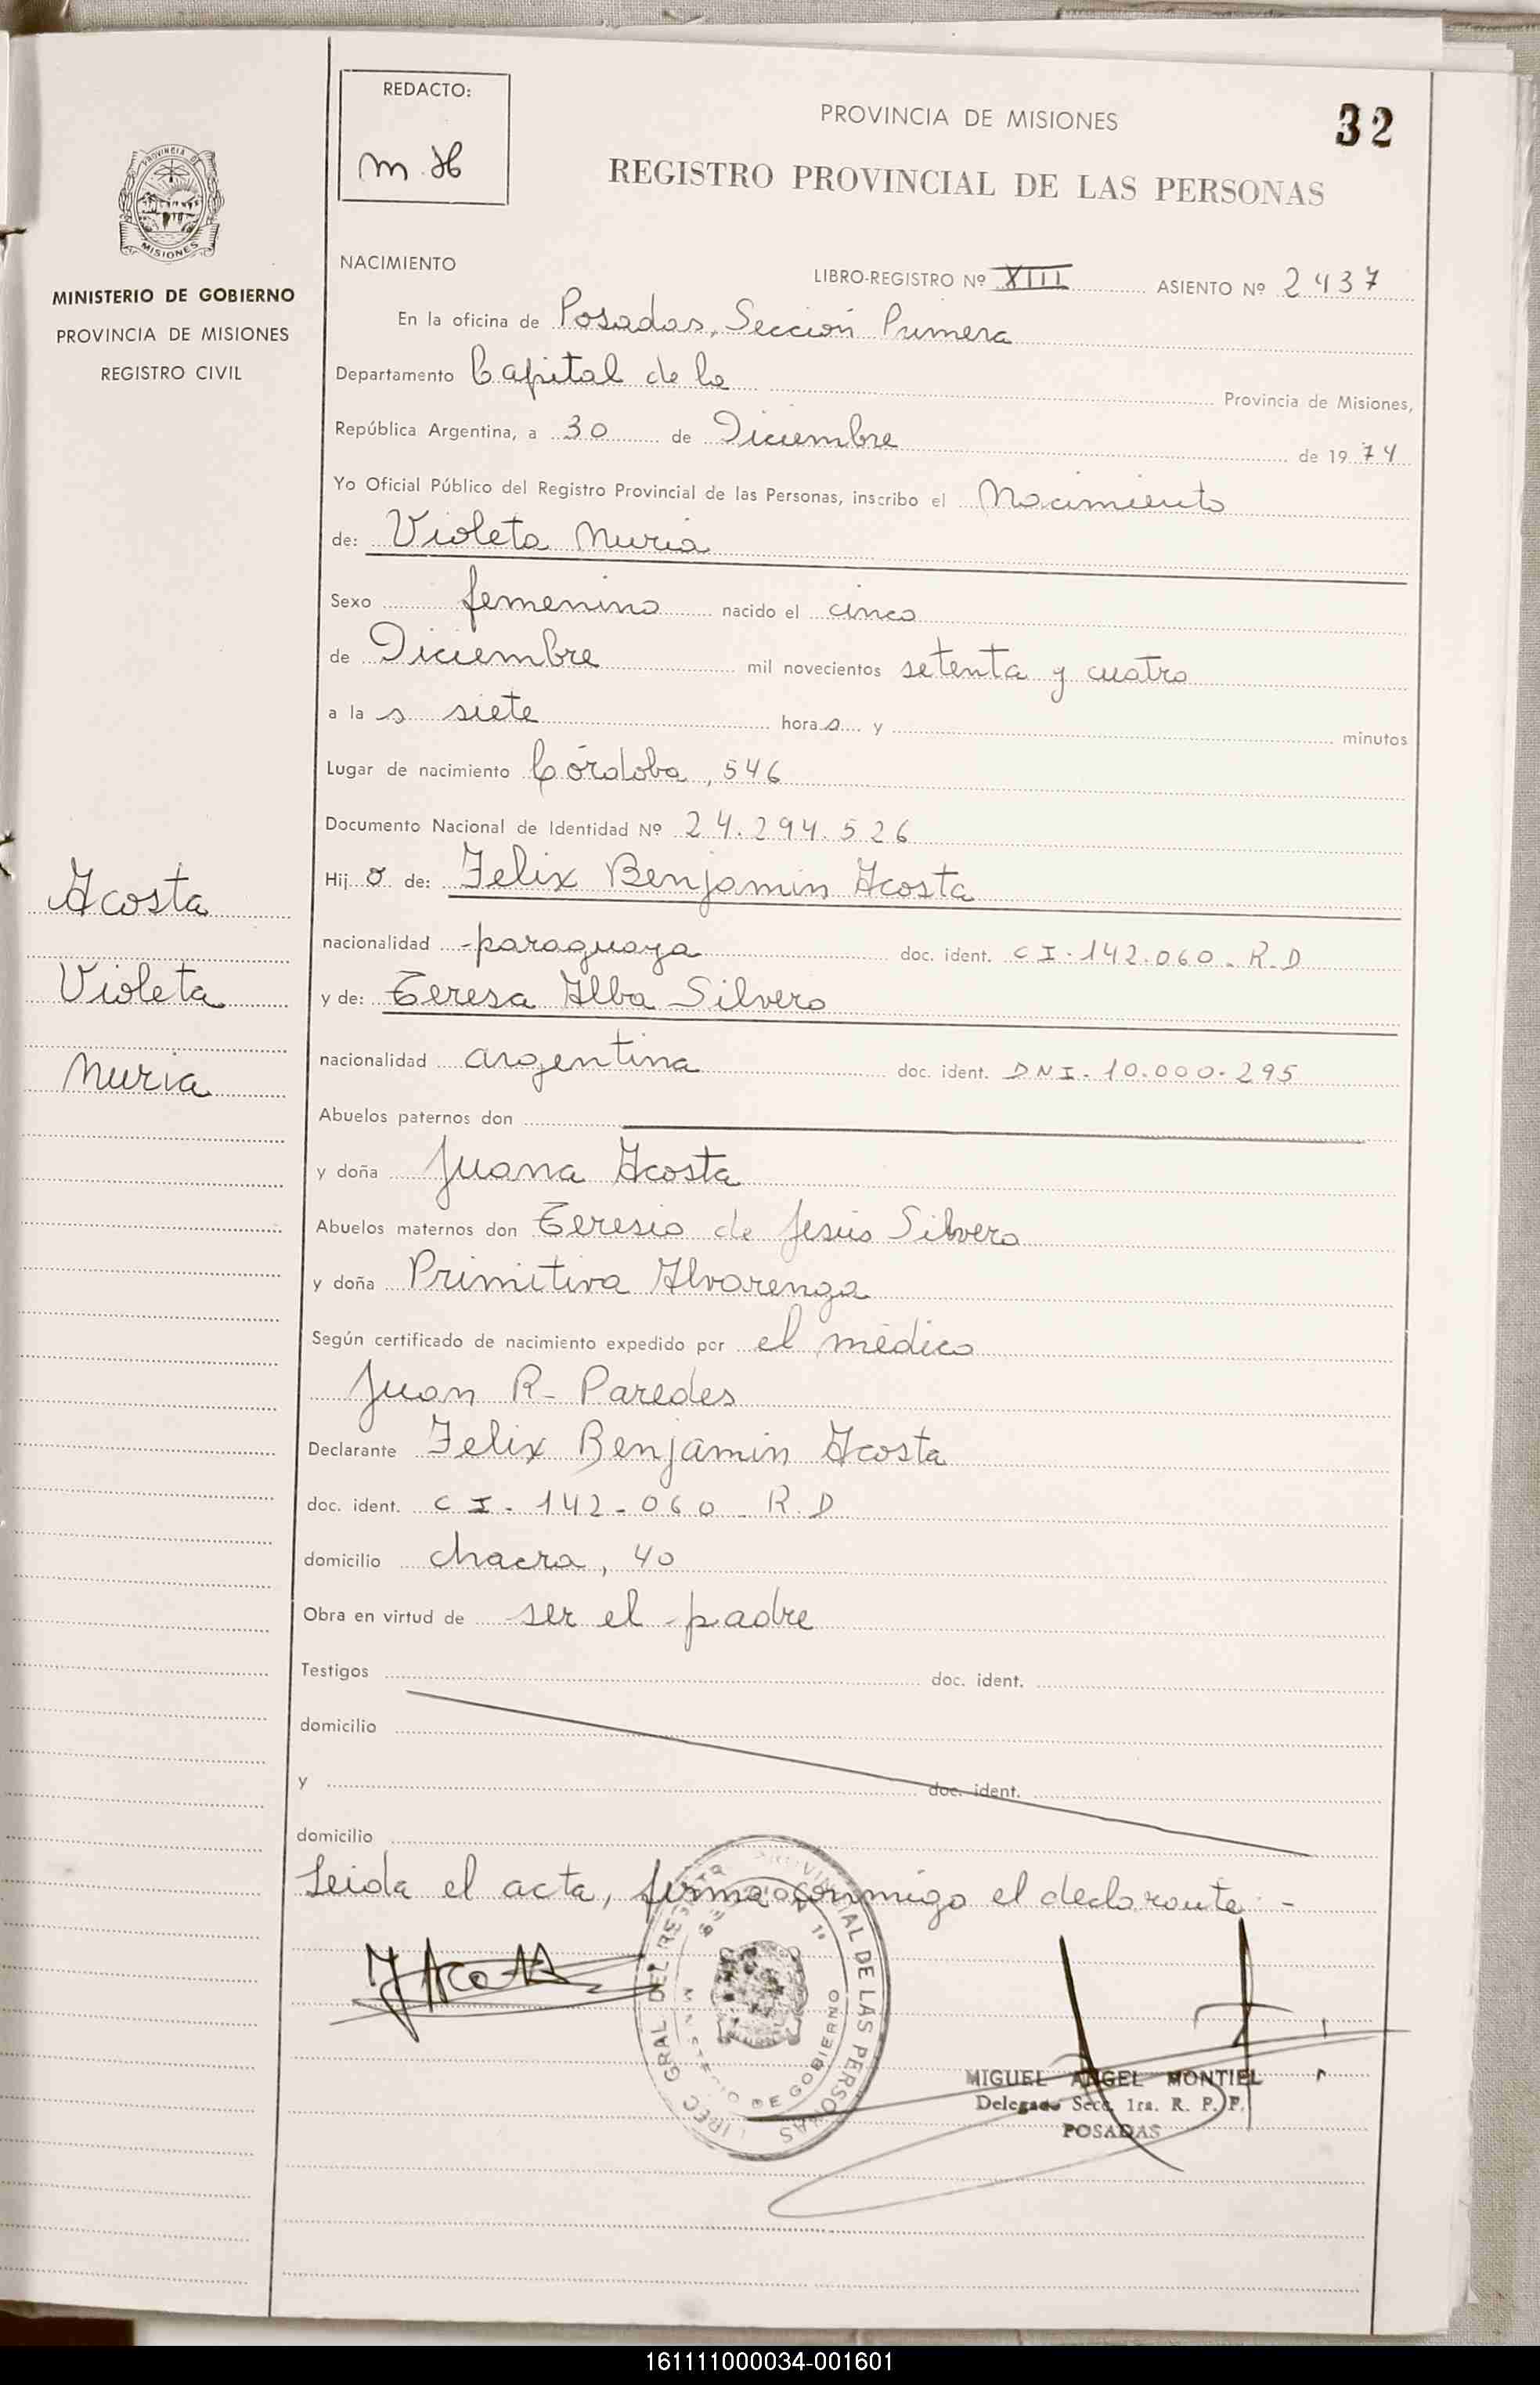 REDACTO:
m. H
PROVINCIA DE MISIONES
32
REGISTRO PROVINCIAL DE LAS PERSONAS
PROVINCIA DE
MISIONES
MINISTERIO DE GOBIERNO
PROVINCIA DE MISIONES
REGISTRO CIVIL
NACIMIENTO
LIBRO-REGISTRO Nº XIII ASIENTO Nº 2437
En la oficina de Posadas, Sección Primera
Departamento Capital de la Provincia de Misiones,
República Argentina, a 30 de Diciembre de 1974
Yo Oficial Público del Registro Provincial de las Personas, inscribo el Nacimiento
de: Violeta Nuria
Sexo femenino nacido el cinco
de Diciembre mil novecientos setenta y cuatro
a la s siete horas y minutos
Lugar de nacimiento Córdoba, 546
Documento Nacional de Identidad Nº 24.294.526
Hija de: Felix Benjamin Acosta
nacionalidad paraguaya doc. ident. CI-142.060-R.D
y de: Teresa Alba Silvero
nacionalidad argentina doc. ident. DNI-10.000-295
Abuelos paternos don
y doña Juana Acosta
Abuelos maternos don Teresio de Jesús Silvero
y doña Primitiva Alvarenga
Según certificado de nacimiento expedido por el médico
Juan R- Paredes
Declarante Felix Benjamin Acosta
doc. ident. CI-142-060-R.D
domicilio chacra, 40
Obra en virtud de ser el padre
Testigos doc. ident.
domicilio
y doc. ident.
domicilio
Leida el acta, firma conmigo el declarante.-
Acosta
Violeta
Nuria
MIGUEL ANGEL MONTIEL
Delegado Secc. 1ra. R. P. P.
POSADAS
161111000034-001601